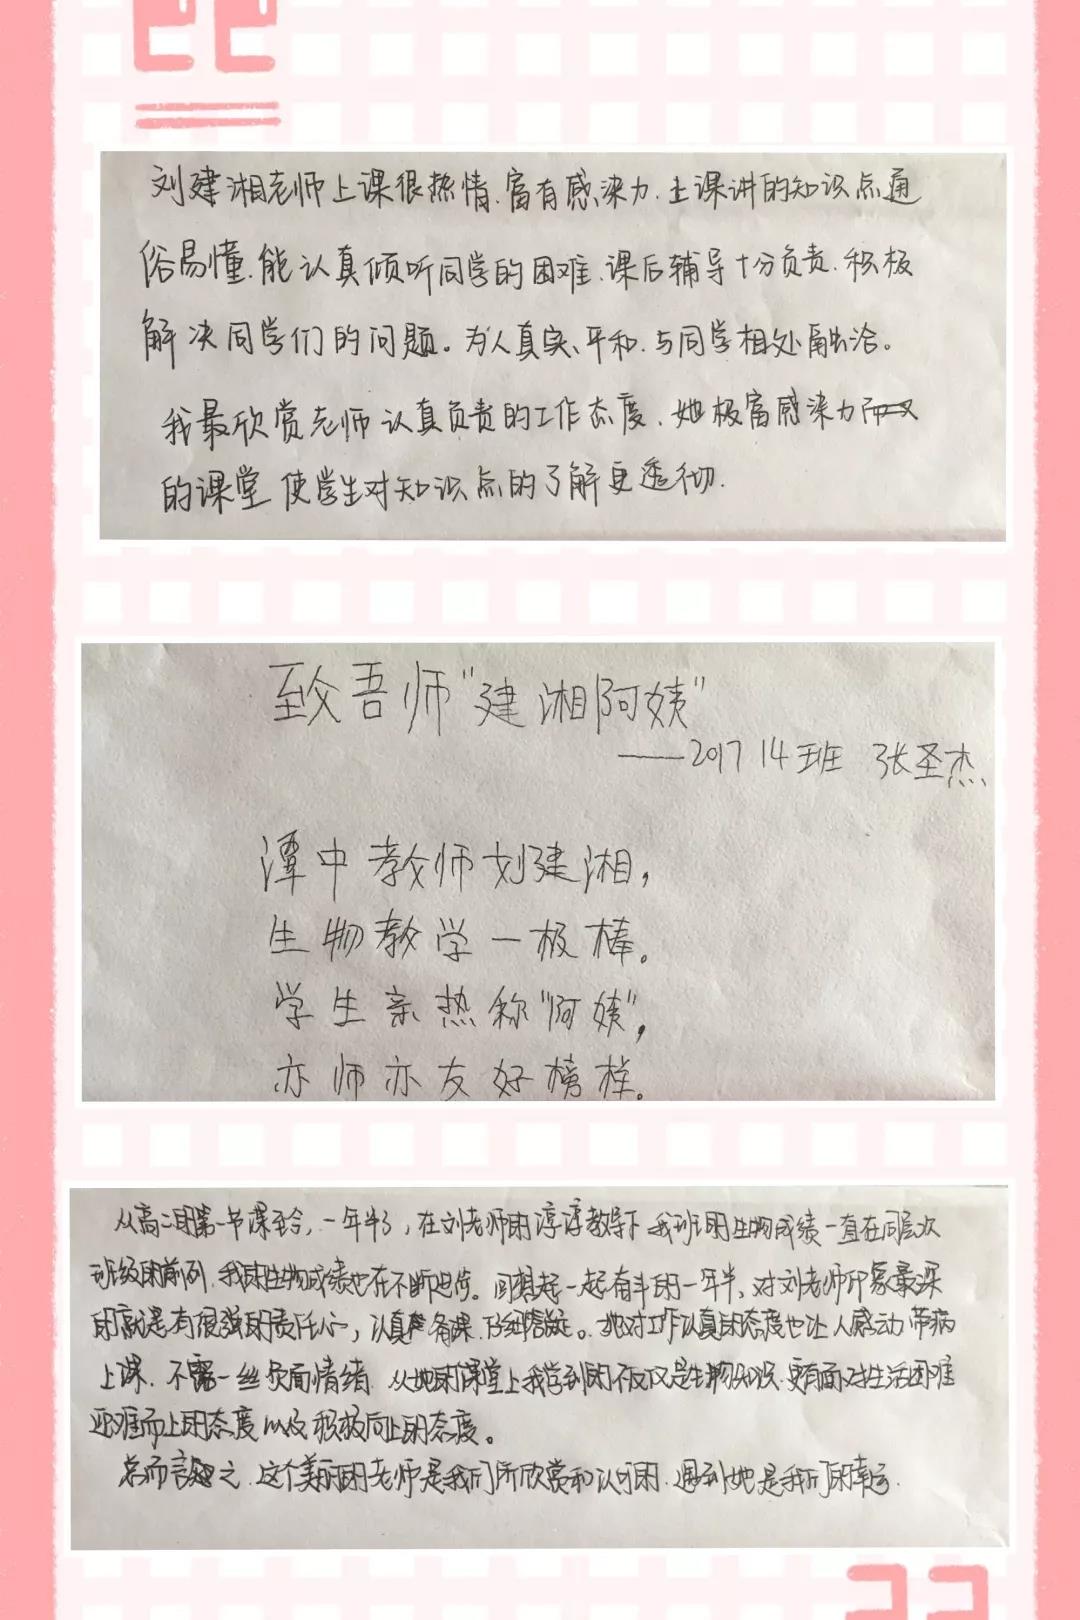 刘建湘老师上课很热情、富有感染力、上课讲的知识点通
俗易懂、能认真倾听同学的困难、课后辅导十分负责、积极
解决同学们的问题。为人真实、平和、与同学相处融洽。
我最欣赏老师认真负责的工作态度、她极富感染力
的课堂 使学生对知识点的了解更透彻.
致吾师"建湘阿姨"
——2017 14班 张圣杰
潭中教师刘建湘，
生物教学一极棒。
学生亲热称"阿姨"，
亦师亦友好榜样。
从高二的第一节课至今，一年半了，在刘老师的淳淳教导下 我班的生物成绩一直在同层次
班级的前列、我的生物成绩也在不断进步。回想起一起奋斗的一年半、对刘老师印象最深
的就是有很强的责任心，认真备课、仔细答疑。她对工作认真的态度也让人感动 带病
上课、不露一丝负面情绪、从她的课堂上我学到的不仅仅是生物知识、更有面对生活困难
迎难而上的态度以及积极向上的态度。
总而言之、这个美丽的老师是我们所欣赏和认可的、遇到她是我们的幸运.